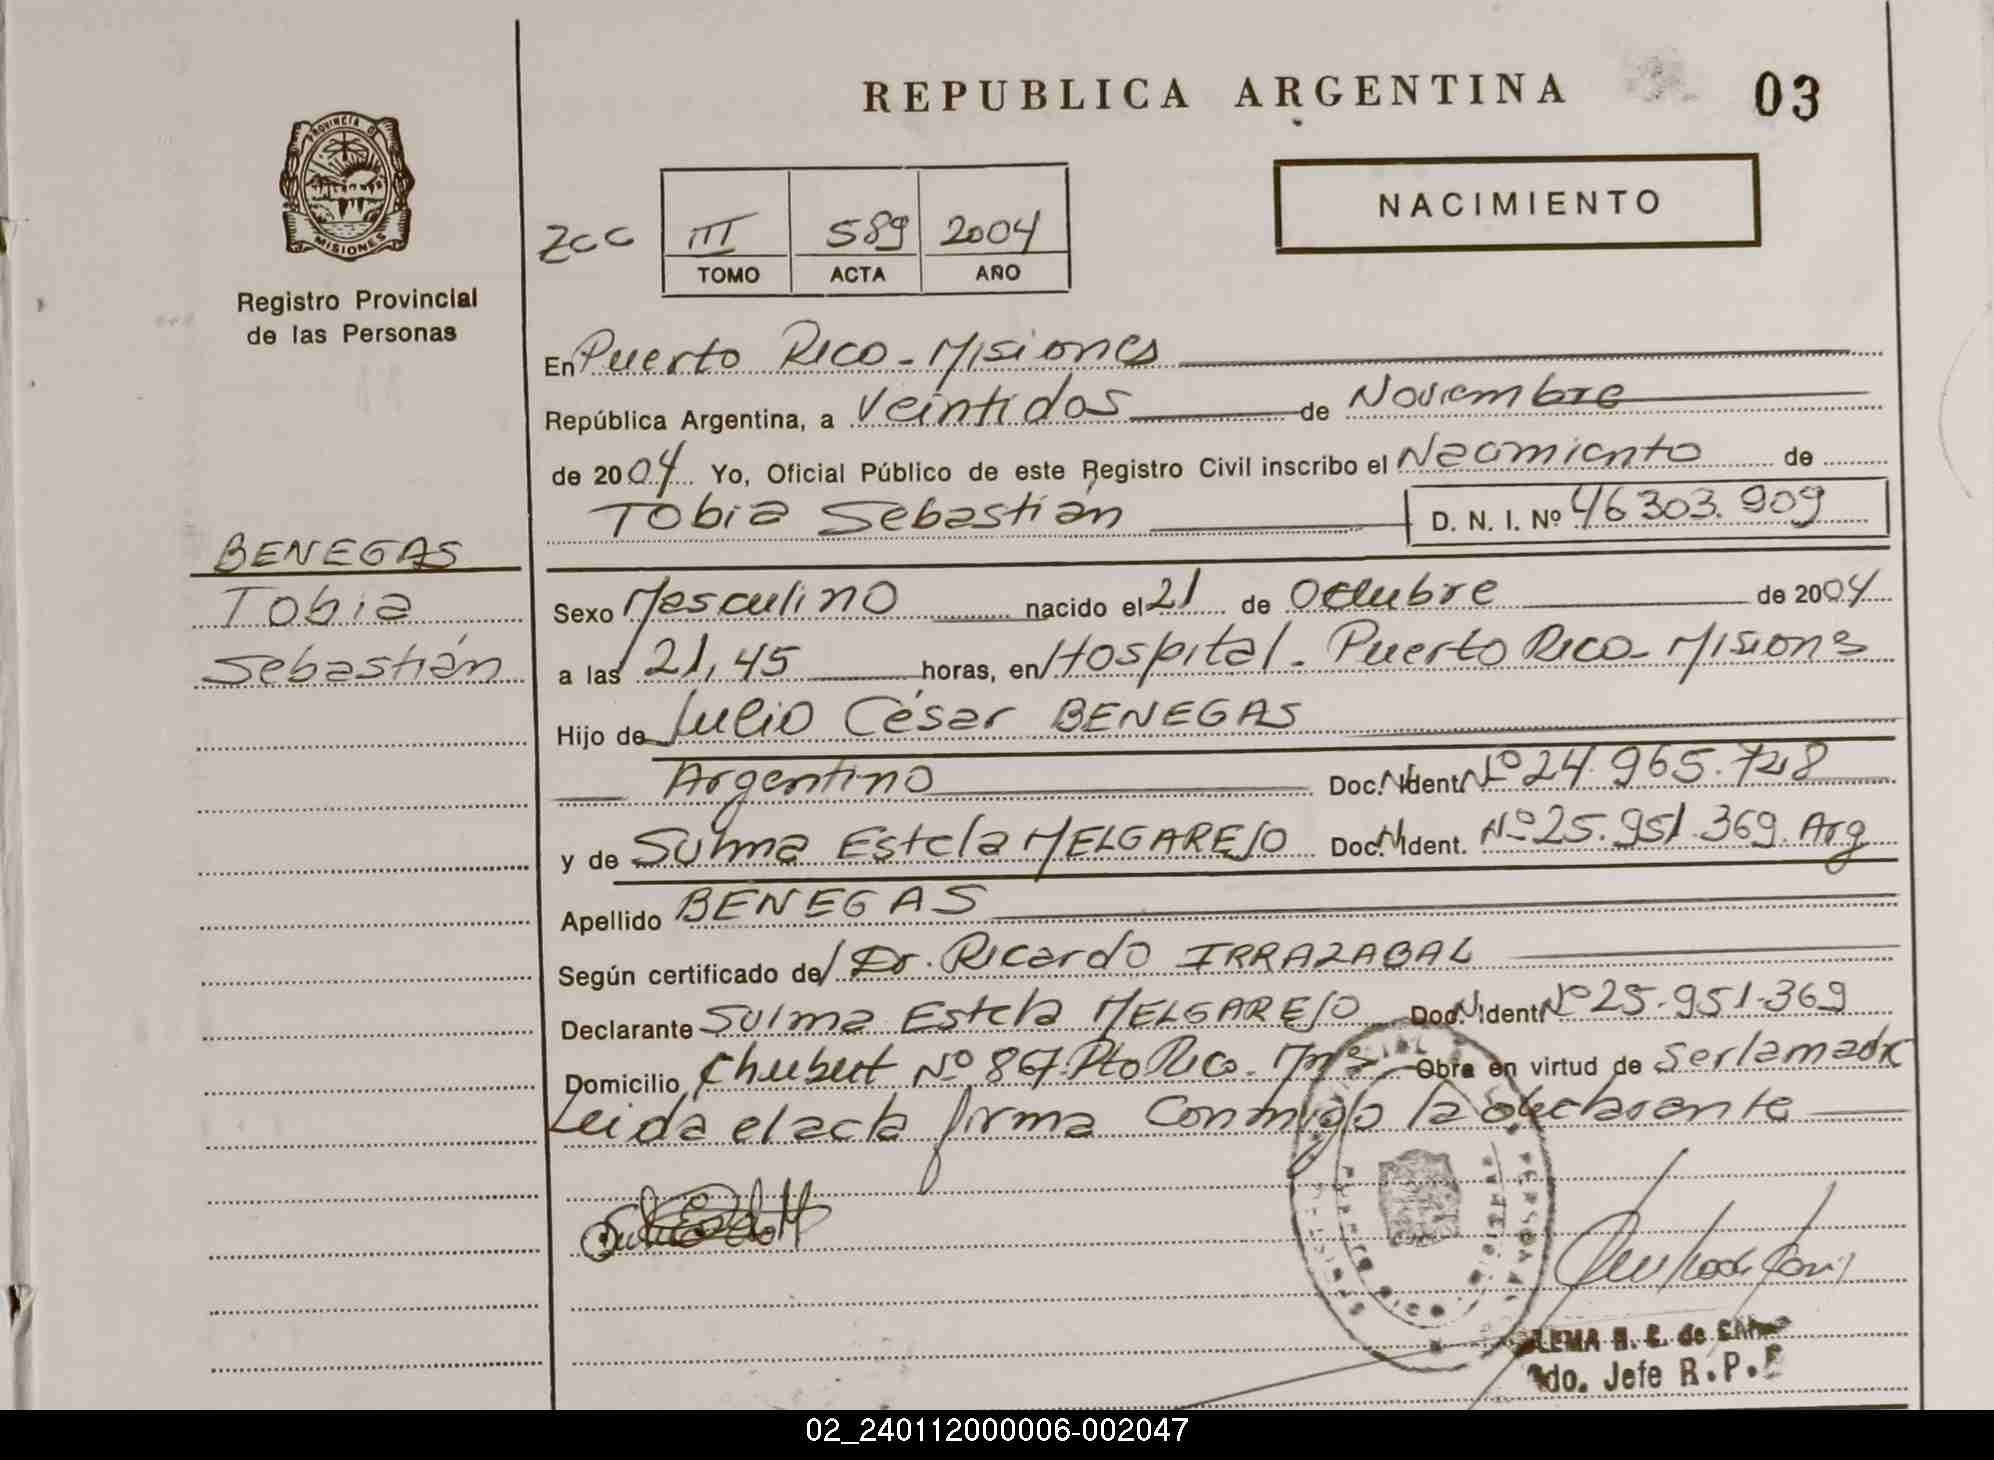 REPUBLICA ARGENTINA
03
PROVINCIA DE
MISIONES
Registro Provincial
de las Personas
NACIMIENTO
ZCC
III 589 2004
TOMO ACTA AÑO
En Puerto Rico - Misiones
República Argentina, a Veintidos de Noviembre
de 2004 Yo, Oficial Público de este Registro Civil inscribo el Nacimiento de
Tobia Sebastián D. N. I. Nº 46303.909
BENEGAS
Tobia
Sebastián
Sexo Masculino nacido el 21 de Octubre de 2004
a las 21,45 horas, en Hospital - Puerto Rico - Misiones
Hijo de Julio César BENEGAS
Argentino Doc. N. Ident. Nº 24.965.728
y de Sulma Estela MELGAREJO Doc. N. Ident. Nº 25.951.369. Arg
Apellido BENEGAS
Según certificado de Dr. Ricardo IRRAZABAL
Declarante Sulma Estela MELGAREJO Doc. N. Ident. Nº 25.951.369
Domicilio Nº 867. Pto Rico. Mnes Obra en virtud de ser la madre
Leida el acta firma Conmigo la declarante
H. E. de
do. Jefe R.P.
02_240112000006-002047